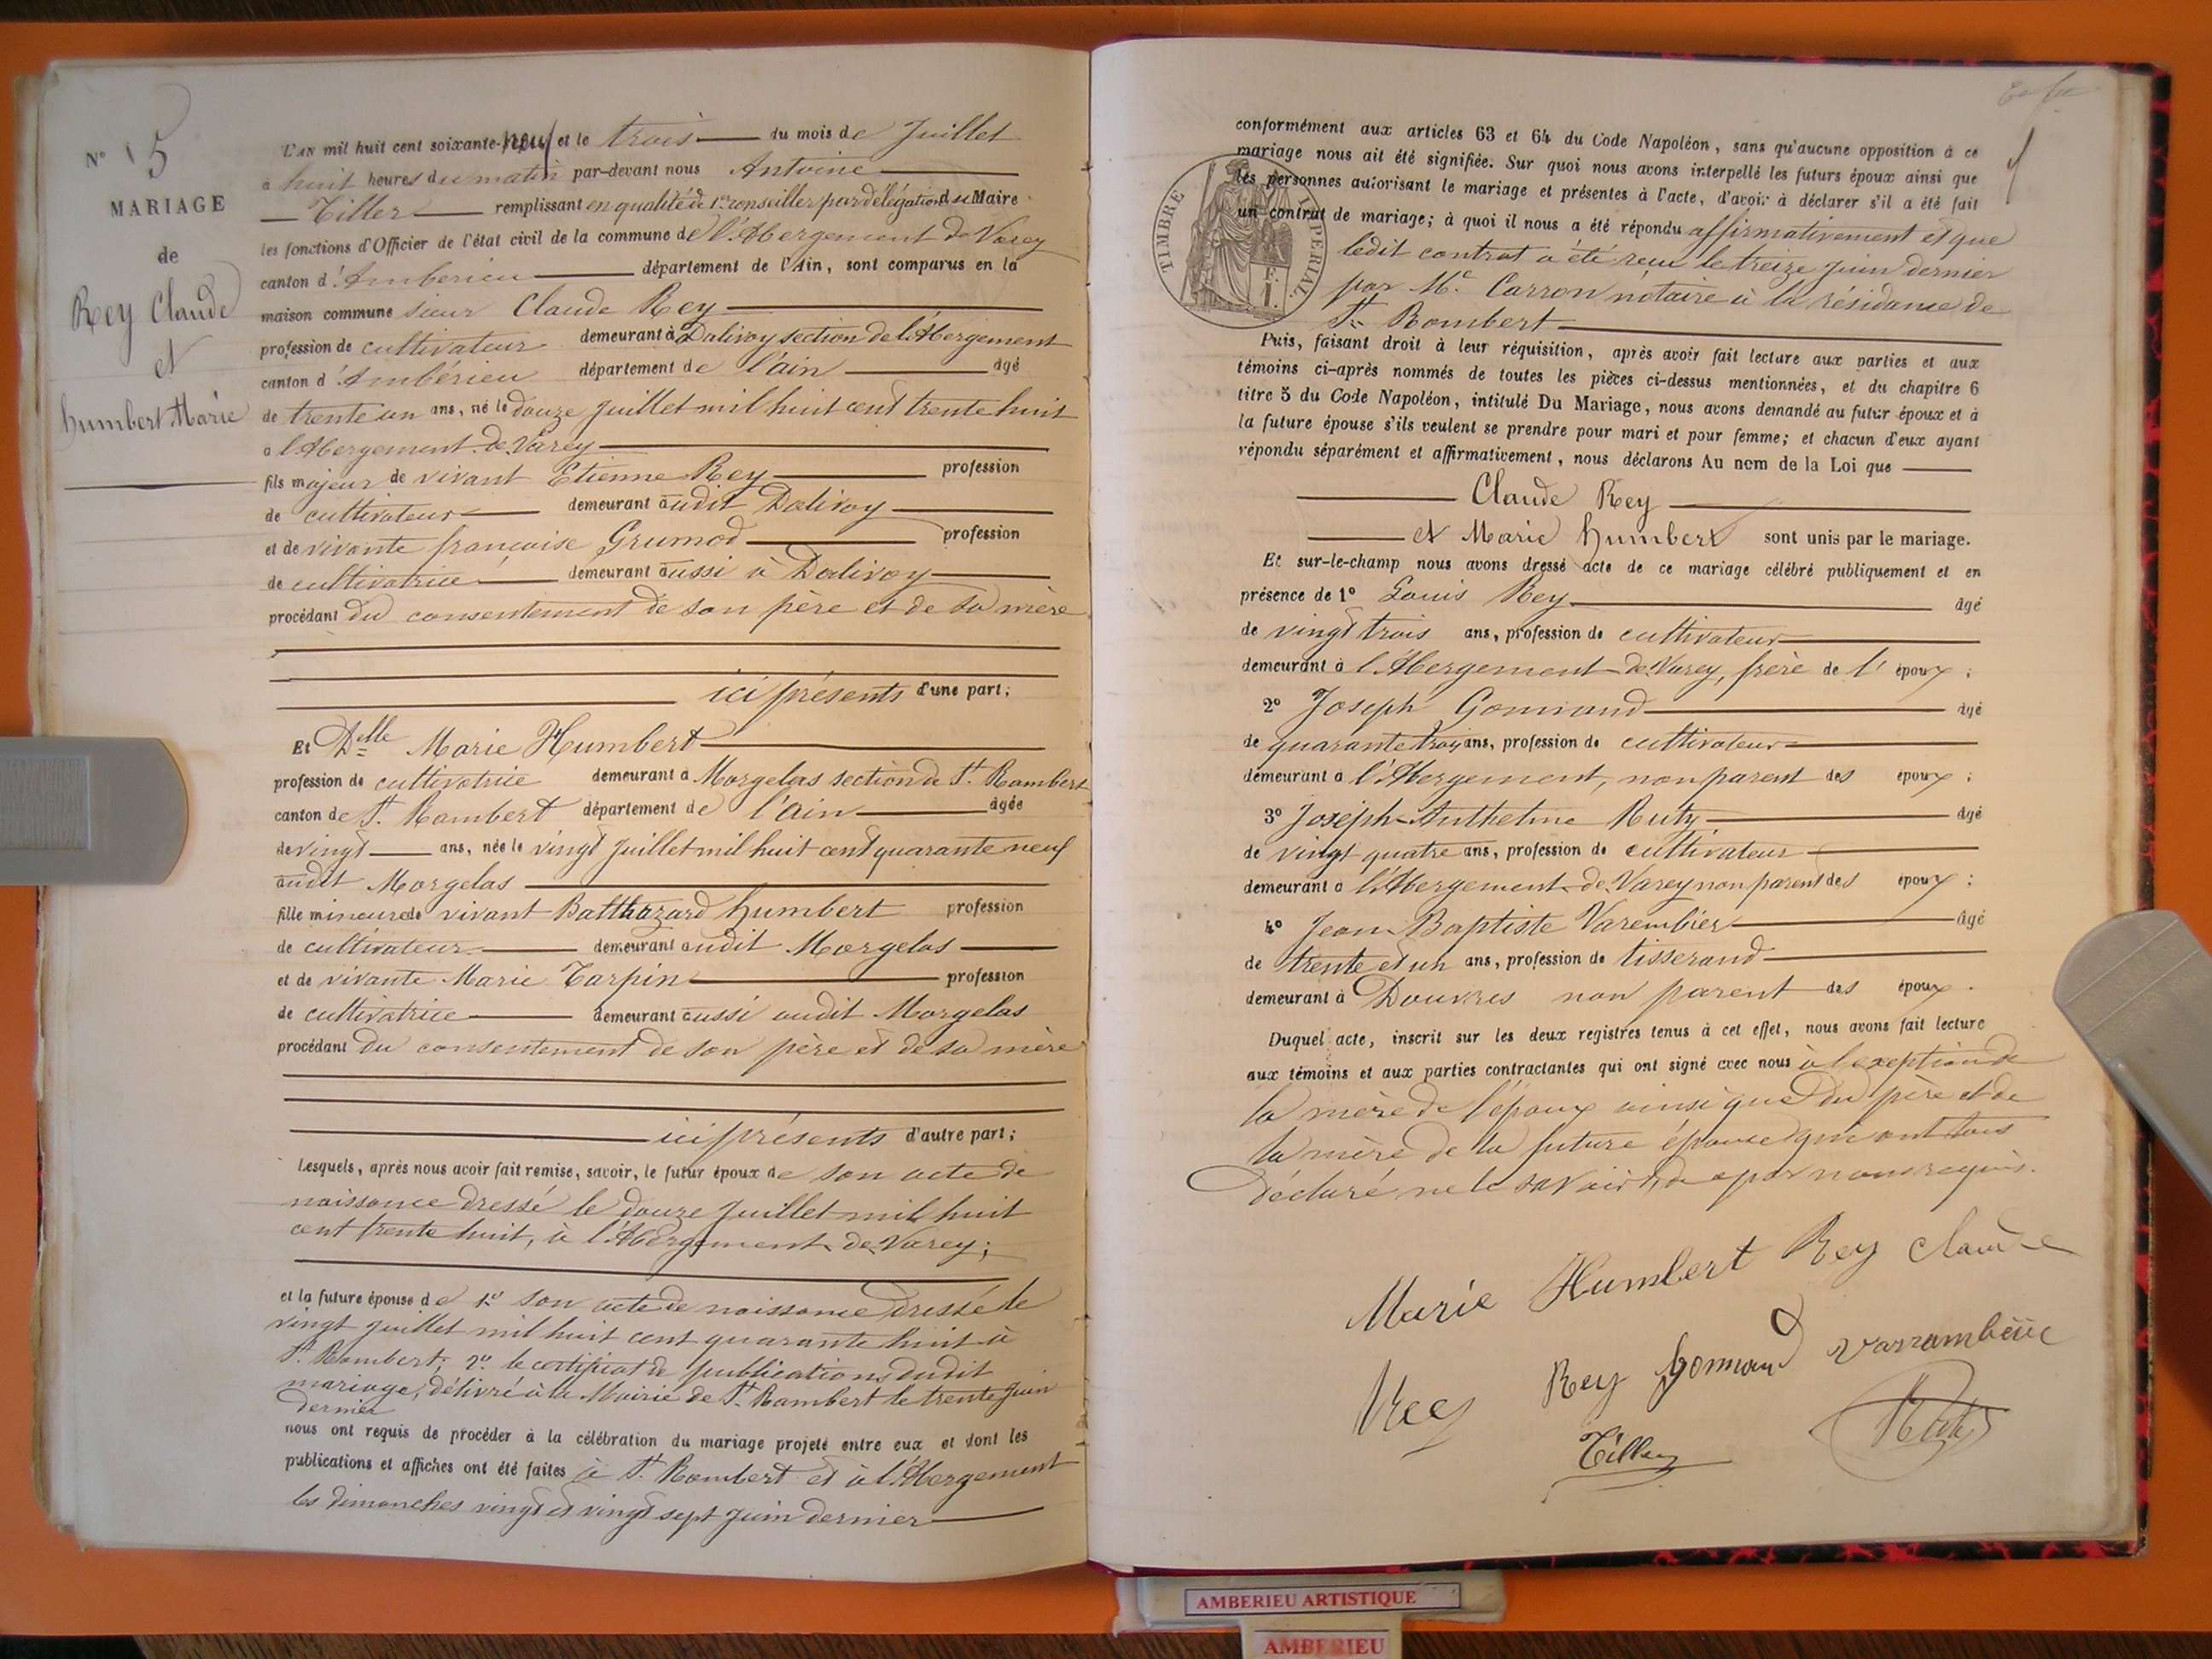 N° 5
MARIAGE
de
Rey Claude
et
humbert Marie
L'AN mil huit cent soixante-neuf et le trois du mois de Juillet
à huit heures du matin par-devant nous Antoine
Tiller remplissant en qualité de 1er conseiller par délégation du Maire
les fonctions d'Officier de l'état civil de la commune de l'Abergement de Varey
canton d'Amberieu département de l'Ain, sont comparus en la
maison commune sieur Claude Rey
profession de cultivateur demeurant à Dalivoy section de l'Abergement
canton d'Ambérieu département de l'ain âgé
de trente un ans, né le douze Juillet mil huit cent trente huit
a l'Abergement de Varey
fils majeur de vivant Etienne Rey profession
de cultivateur demeurant audit Dalivoy
et de vivante francoise Grumod profession
de cultivatrice demeurant aussi à Dalivoy
procédant du consentement de son père et de sa mère
ici présents d'une part;
Et Delle Marie Humbert
profession de cultivatrice demeurant à Morgelas section de St. Rambert
canton de St. Rambert département de l'ain âgée
de vingt ans, née le vingt Juillet mil huit cent quarante neuf
audit Morgelas
fille mineure de vivant Balthazard humbert profession
de cultivateur demeurant audit Morgelas
et de vivante Marie Tarpin profession
de cultivatrice demeurant aussi audit Morgelas
procédant du consentement de son père et de sa mère
ici présents d'autre part;
Lesquels, après nous avoir fait remise, savoir, le futur époux de son acte de
naissance dressé le douze Juillet mil huit
cent trente huit, à l'Abergement de Varey;
et la future épouse de 1° son acte de naissance dressé le
vingt juillet mil huit cent quarante huit à
St. Rambert; 2° le certificat de publications dudit
mariage, délivré à la Mairie de St. Rambert le trente Juin
dernier
nous ont requis de procéder à la célébration du mariage projeté entre eux et dont les
publications et affiches ont été faites à St. Rambert et à l'Abergement
les dimanches vingt et vingt sept Juin dernier
conformément aux articles 63 et 64 du Code Napoléon, sans qu'aucune opposition à ce
mariage nous ait été signifiée. Sur quoi nous avons interpellé les futurs époux ainsi que
les personnes autorisant le mariage et présentes à l'acte, d'avoir à déclarer s'il a été fait
un contrat de mariage; à quoi il nous a été répondu affirmativement et que
TIMBRE IMPERIAL
ledit contrat a été reçu le treize Juin dernier
par Me. Carron notaire à la résidance de
St. Rambert
Puis, faisant droit à leur réquisition, après avoir fait lecture aux parties et aux
témoins ci-après nommés de toutes les pièces ci-dessus mentionnées, et du chapitre 6
titre 5 du Code Napoléon, intitulé Du Mariage, nous avons demandé au futur époux et à
la future épouse s'ils veulent se prendre pour mari et pour femme; et chacun d'eux ayant
répondu séparément et affirmativement, nous déclarons Au nom de la Loi que
Claude Rey
et Marie humbert sont unis par le mariage.
Et sur-le-champ nous avons dressé acte de ce mariage célébré publiquement et en
présence de 1° Louis Rey âgé
de vingt trois ans, profession de cultivateur
demeurant à l'Abergement de Varey, frère de l'époux;
2° Joseph Gonnand âgé
de quarante trois ans, profession de cultivateur
demeurant à l'Abergement, non parent des époux;
3° Joseph Anthelme Ruty âgé
de vingt quatre ans, profession de cultivateur
demeurant à l'Abergement de Varey non parent des époux;
4° Jean Baptiste Varembier âgé
de trente et un ans, profession de tisserand
demeurant à Douvres non parent des époux.
Duquel acte, inscrit sur les deux registres tenus à cet effet, nous avons fait lecture
aux témoins et aux parties contractantes qui ont signé avec nous à l'exeption de
la mère de l'époux ainsi que du père et de
la mère de la future épouse qui ont tous
déclaré ne le savoir, de ce par nous requis.
Marie Humbert Rey Claude
Rey Rey Gonnand Varrambier
Tiller Ruty
AMBERIEU ARTISTIQUE
AMBERIEU